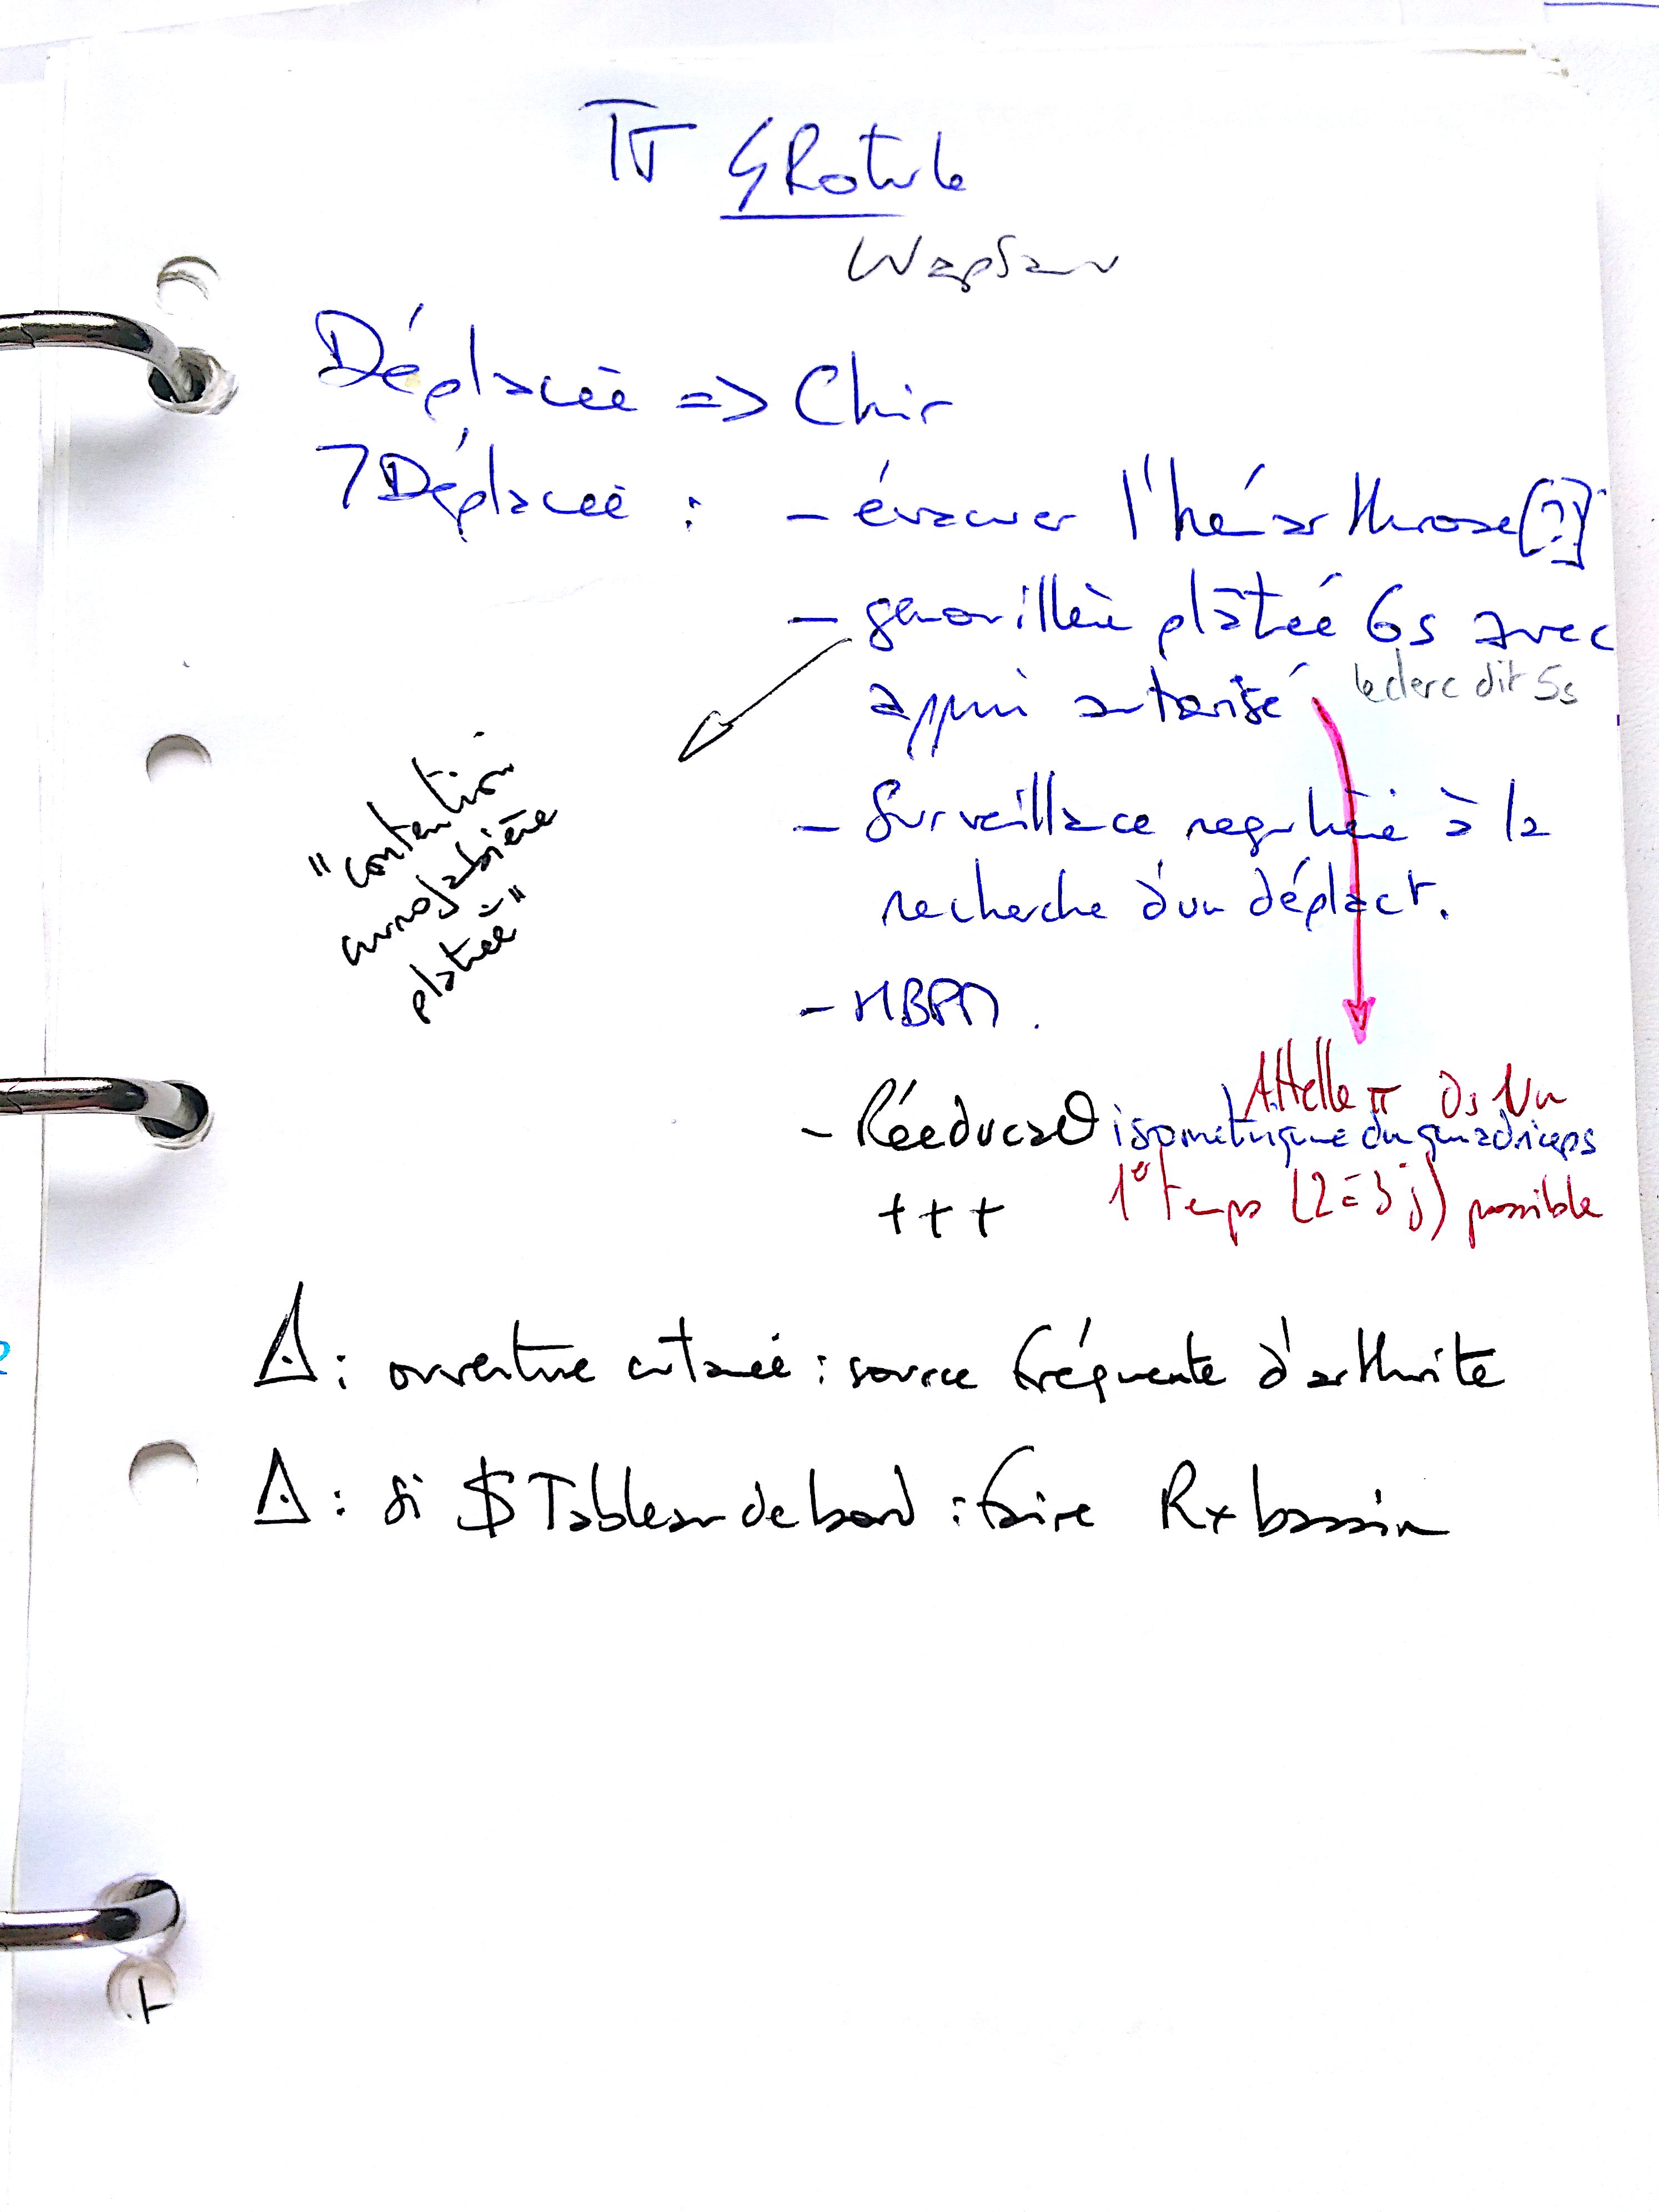 TT Rotule
Déplacée => Chir
7 Déplacée : - évacuer l'hémarthrose [?]
- genouillère plâtrée 6s avec
appui autorisé
leclerc dit 5s
"contention
cruropédieuse
plâtrée"
- Surveillance regulière à la
recherche d'un déplact.
- HBPM.
Attelle π ds 1 Un
- Rééduca° isométrique du quadriceps
+++
1er temps (2 = 3j) possible
Δ : ouverture cutanée : source fréquente d'arthrite
Δ : si $ Tableau de bord : faire Rx bassin